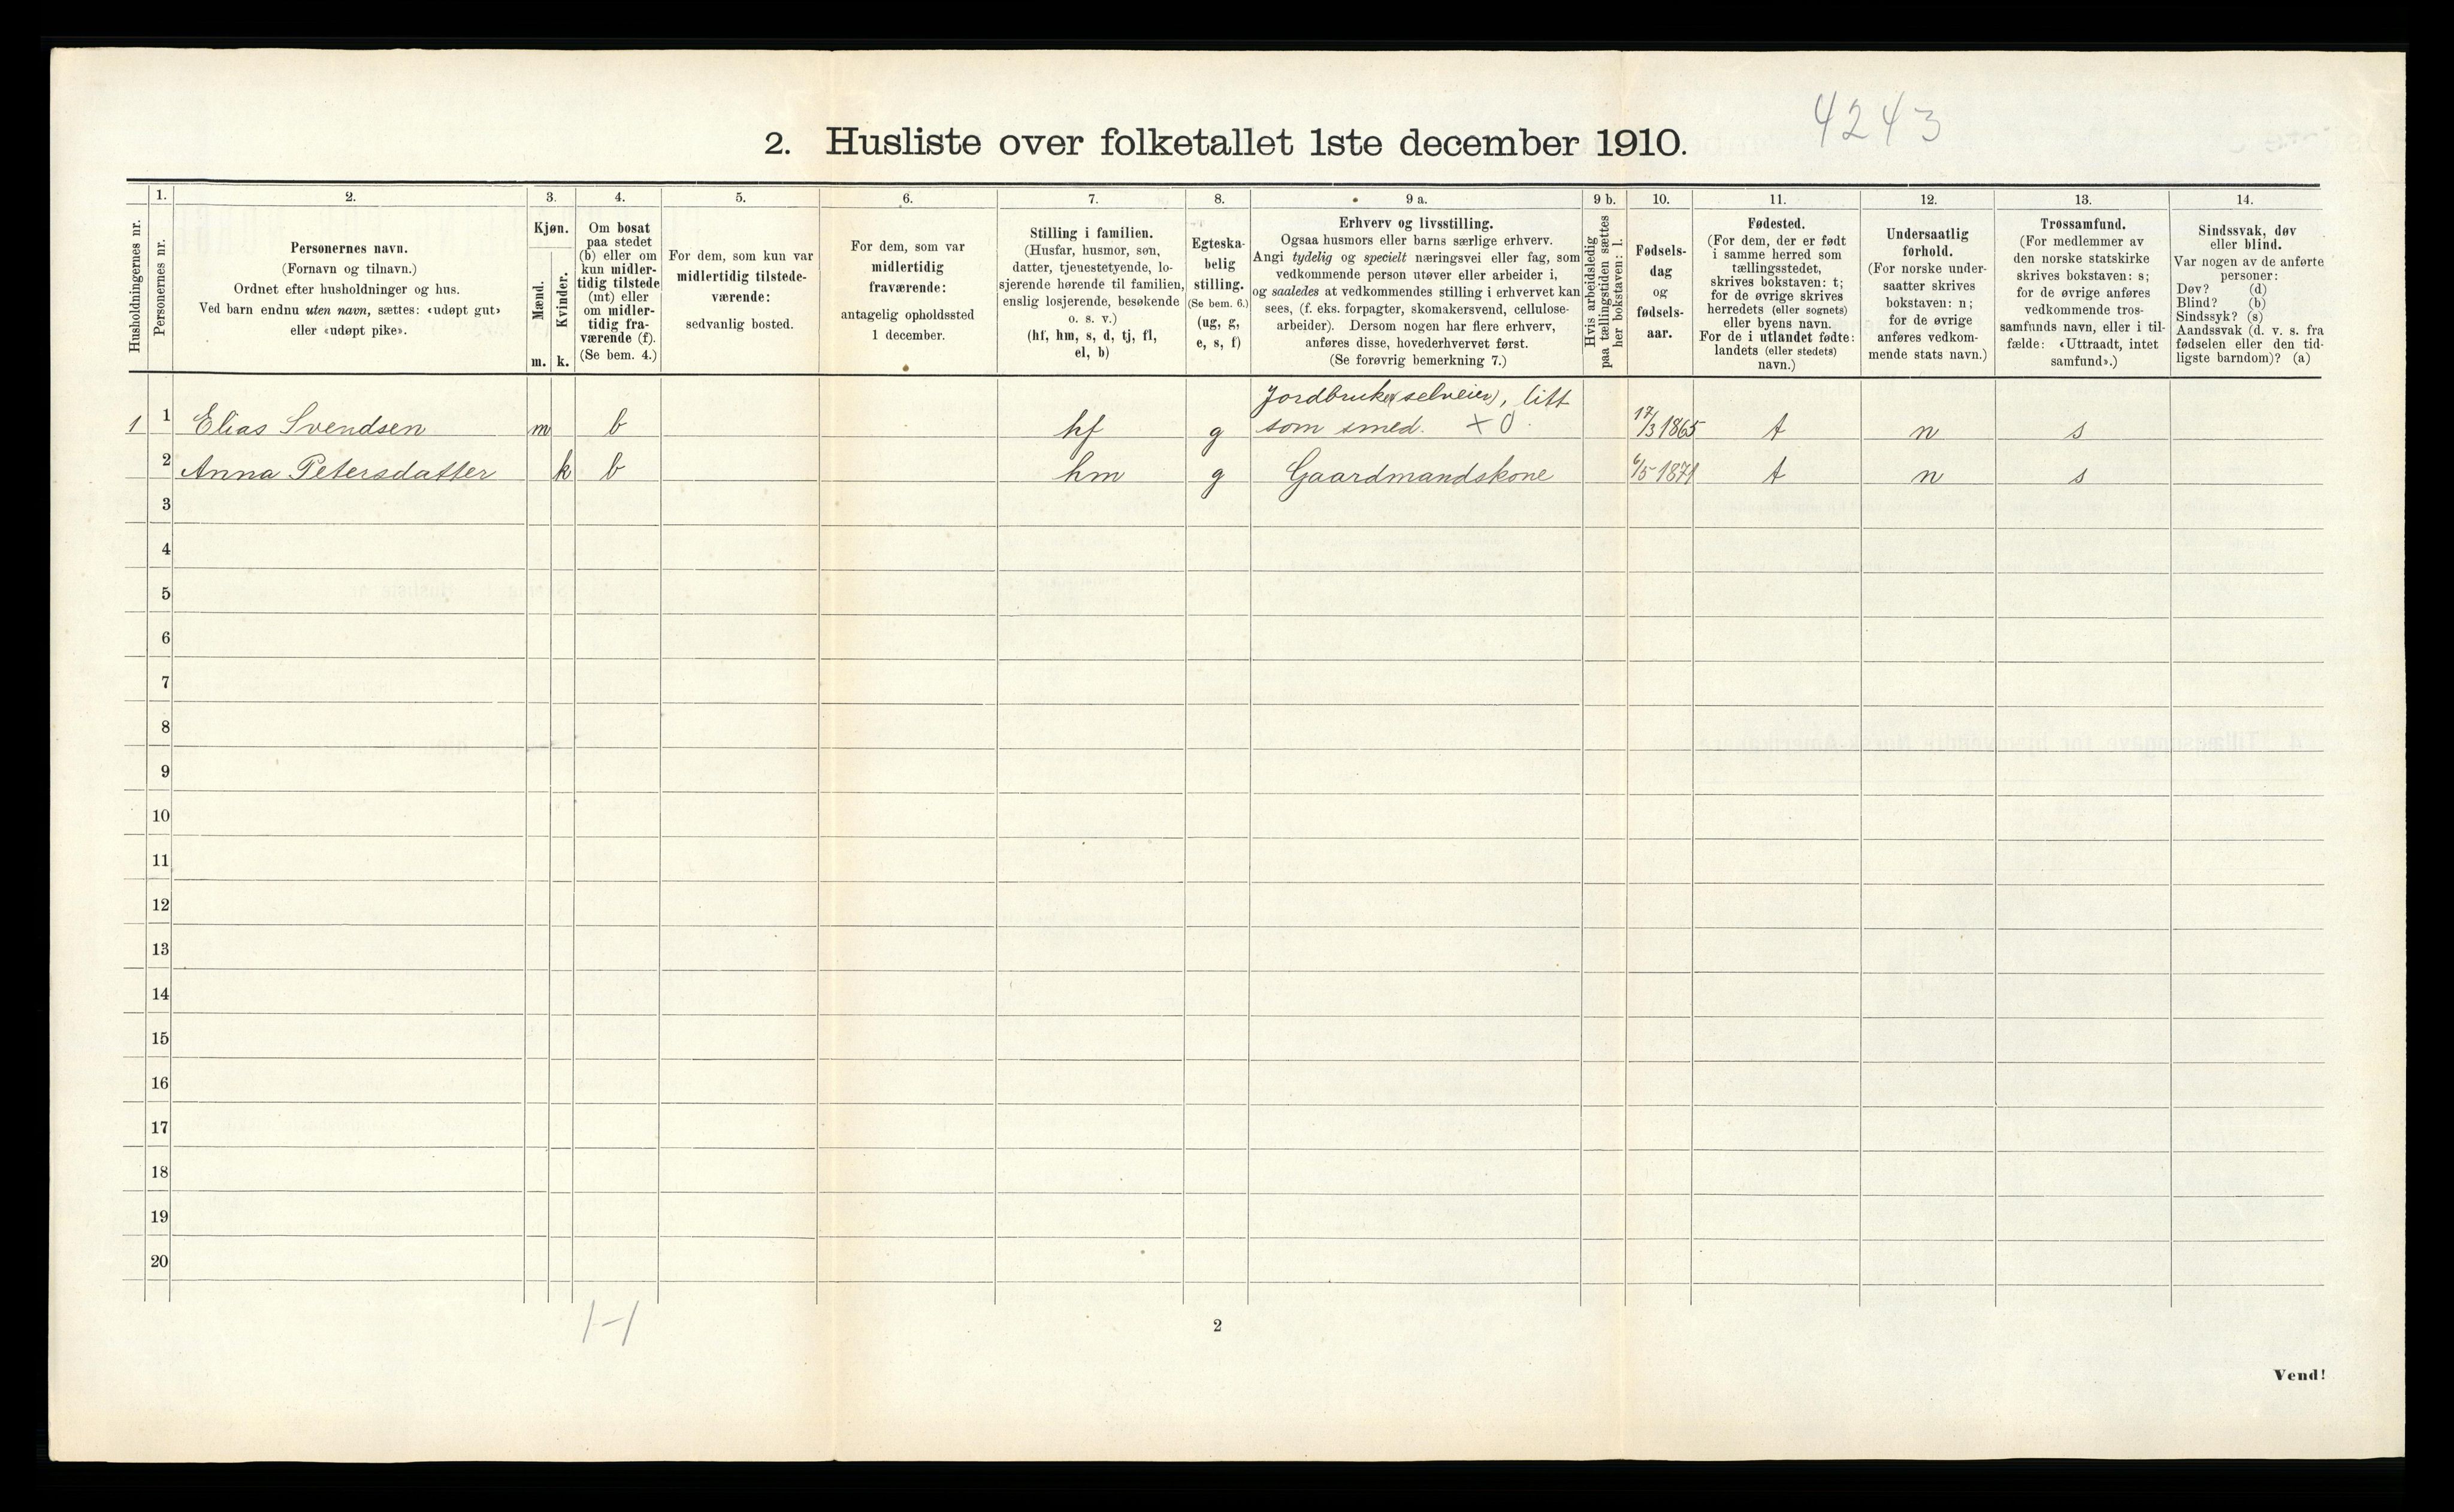 4243
2. Husliste over folketallet 1ste december 1910.
Husholdningernes nr.
1.
Personernes nr.
2.
Personernes navn.
(Fornavn og tilnavn.)
Ordnet efter husholdninger og hus.
Ved barn endnu uten navn, sættes: «udøpt gut»
eller «udøpt pike».
3.
Kjøn.
Mænd.
m.
Kvinder.
k.
4.
Om bosat
paa stedet
(b) eller om
kun midler-
tidig tilstede
(mt) eller
om midler-
tidig fra-
værende (f).
(Se bem. 4.)
5.
For dem, som kun var
midlertidig tilstede-
værende:
sedvanlig bosted.
6.
For dem, som var
midlertidig
fraværende:
antagelig opholdssted
1 december.
7.
Stilling i familien.
(Husfar, husmor, søn,
datter, tjenestetyende, lo-
sjerende hørende til familien,
enslig losjerende, besøkende
o. s. v.)
(hf, hm, s, d, tj, fl,
el, b)
8.
Egteska-
belig
stilling.
(Se bem. 6.)
(ug, g,
e, s, f)
9 a.
Erhverv og livsstilling.
Ogsaa husmors eller barns særlige erhverv.
Angi tydelig og specielt næringsvei eller fag, som
vedkommende person utøver eller arbeider i,
og saaledes at vedkommendes stilling i erhvervet kan
sees, (f. eks. forpagter, skomakersvend, cellulose-
arbeider). Dersom nogen har flere erhverv,
anføres disse, hovederhvervet først.
(Se forøvrig bemerkning 7.)
9 b.
Hvis arbeidsledig
paa tællingstiden sættes
her bokstaven: l.
10.
Fødsels-
dag
og
fødsels-
aar.
11.
Fødested.
(For dem, der er født
i samme herred som
tællingsstedet,
skrives bokstaven: t;
for de øvrige skrives
herredets (eller sognets)
eller byens navn.
For de i utlandet fødte:
landets (eller stedets)
navn.)
12.
Undersaatlig
forhold.
(For norske under-
saatter skrives
bokstaven: n;
for de øvrige
anføres vedkom-
mende stats navn.)
13.
Trossamfund.
(For medlemmer av
den norske statskirke
skrives bokstaven: s;
for de øvrige anføres
vedkommende tros-
samfunds navn, eller i til-
fælde: «Uttraadt, intet
samfund».)
14.
Sindssvak, døv
eller blind.
Var nogen av de anførte
personer:
Døv? (d)
Blind? (b)
Sindssyk? (s)
Aandssvak (d. v. s. fra
fødselen eller den tid-
ligste barndom)? (a)
Jordbruker (selveier), litt
1 1 Elias Svendsen m b hf g som smed. x 0. 17/3 1865 t n s
2 Anna Petersdatter k b hm g Gaardmandskone 6/5 1871 t n s
3
4
5
6
7
8
9
10
11
12
13
14
15
16
17
18
19
20
1-1
2
Vend!